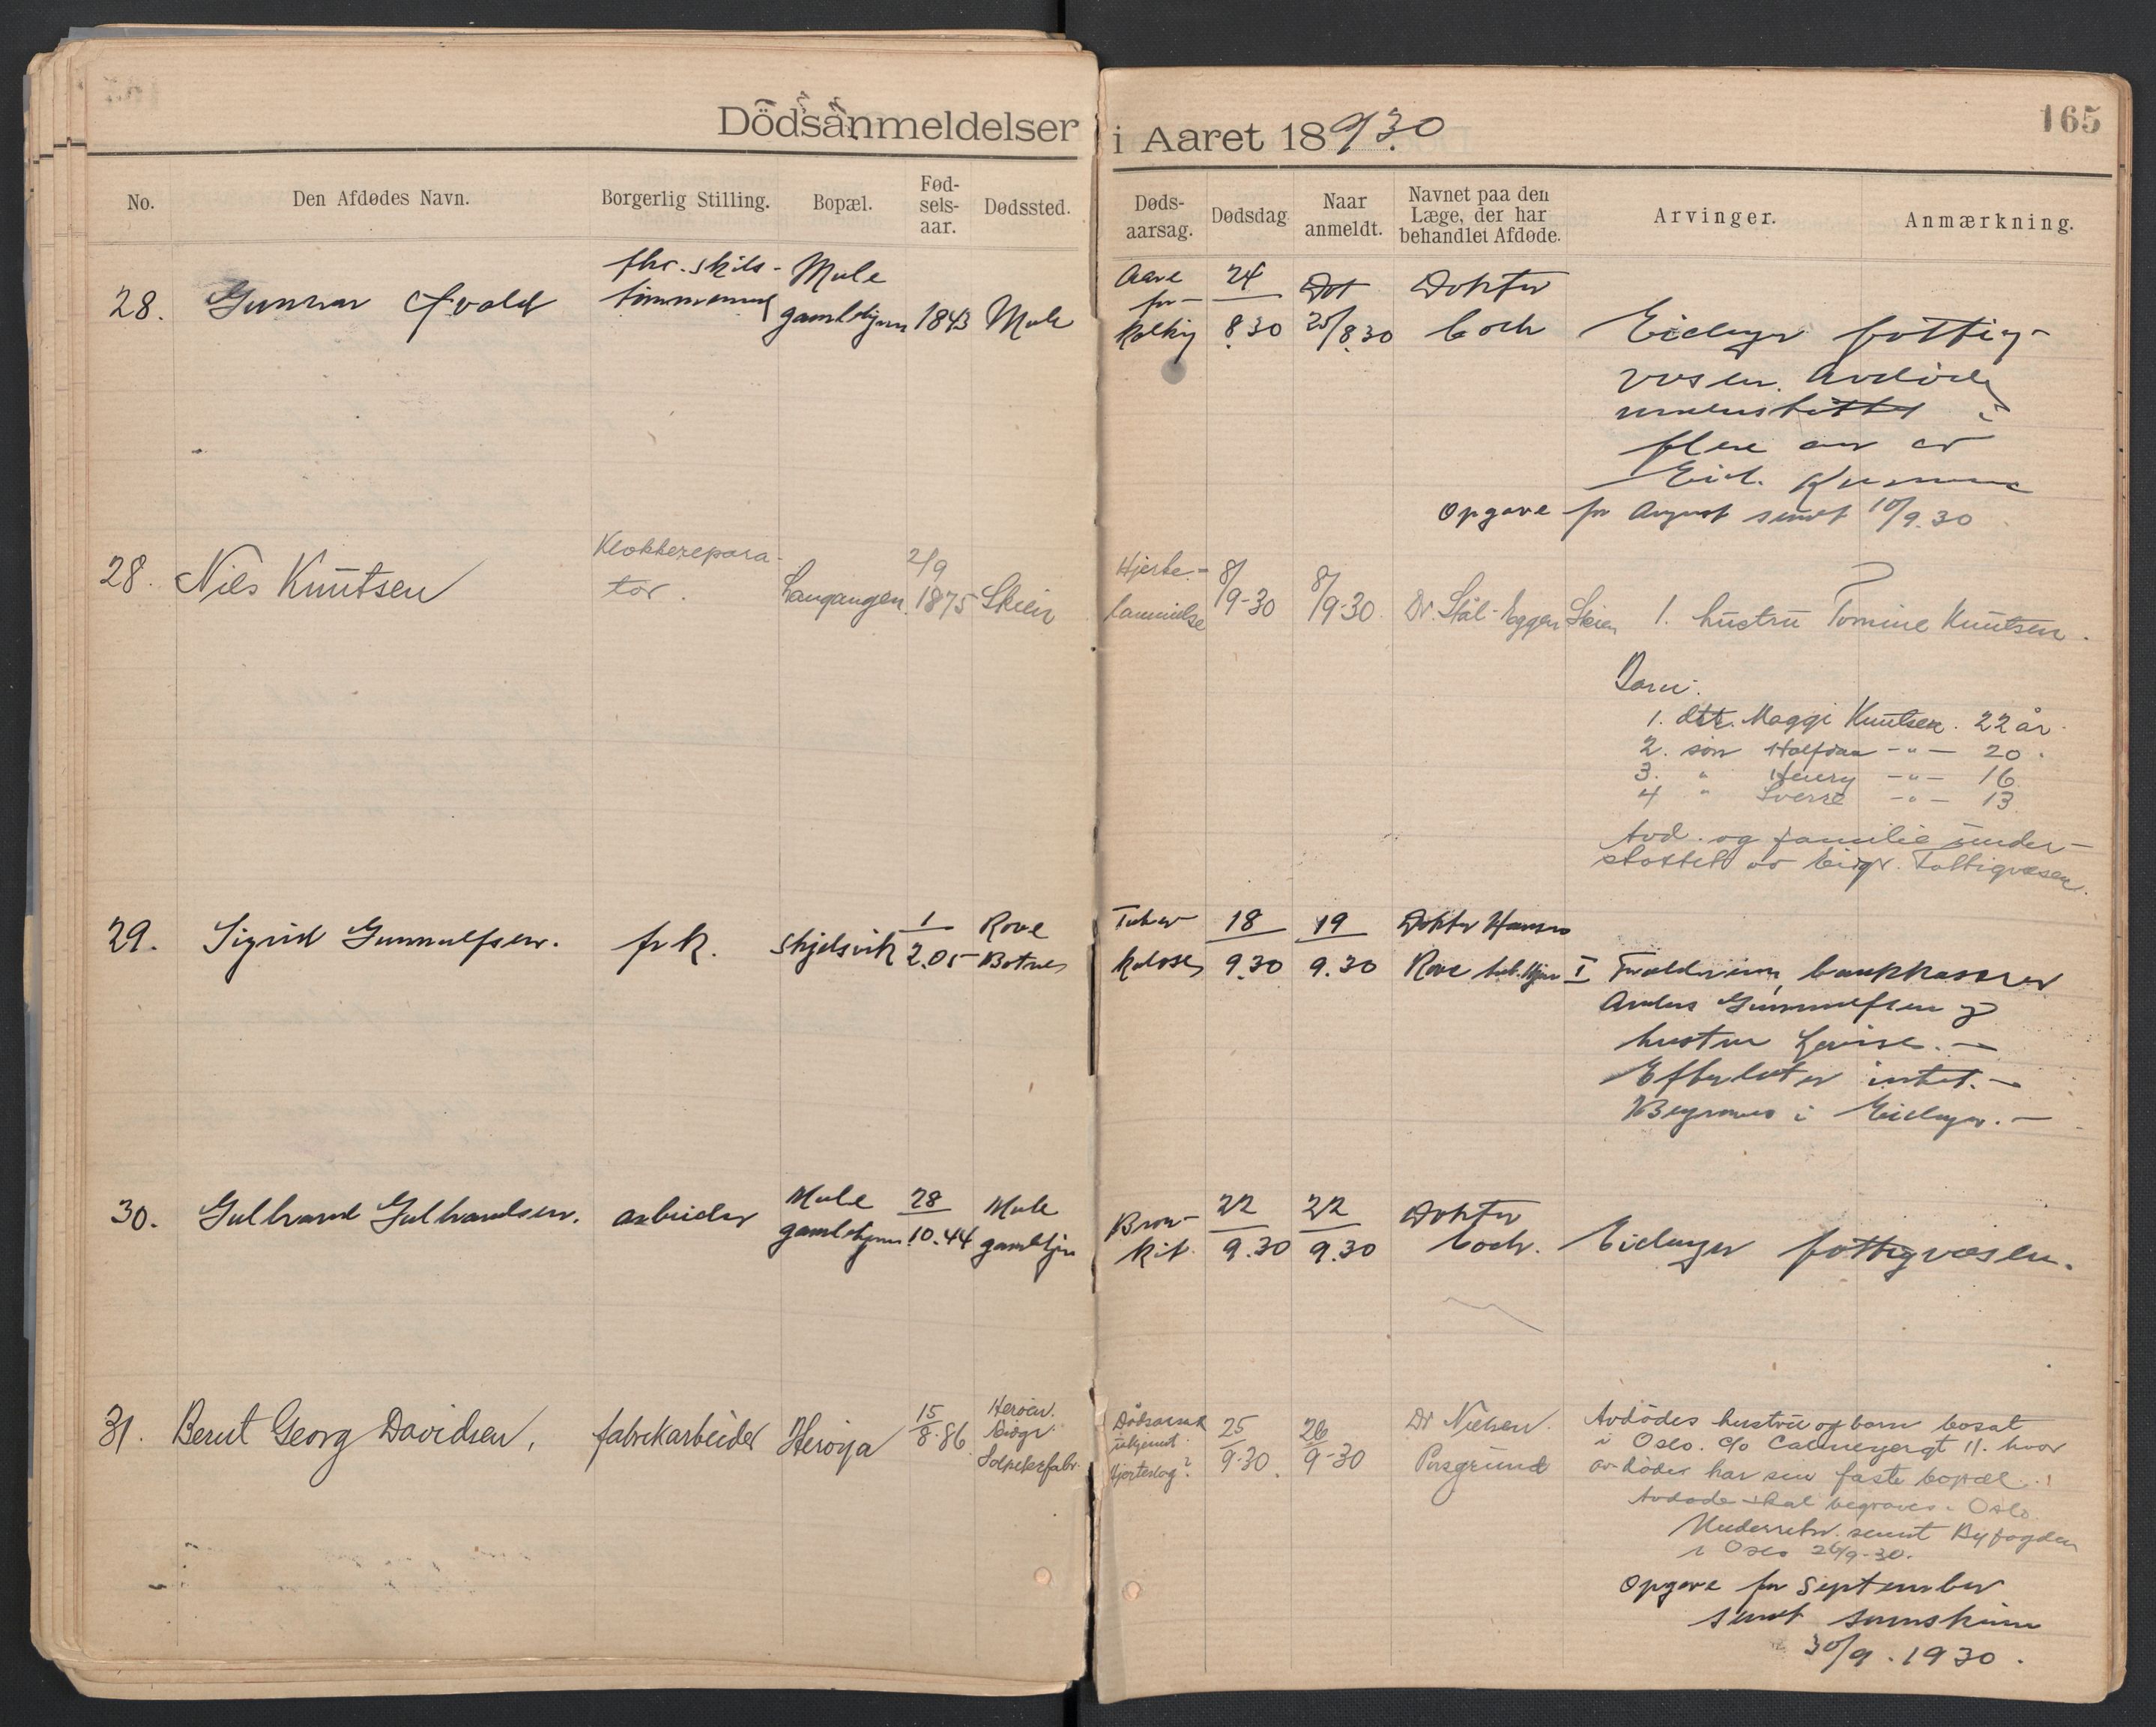 Dödsanmeldelser i Aaret 18930
165
No. Den Afdødes Navn. Borgerlig Stilling. Bopæl. Fød-sels-aar. Dødssted. Døds-aarsag. Dødsdag Naar anmeldt. Navnet paa den Læge, der har behandlet Afdøde. Arvinger. Anmærkning.
fhv. skibs- Mule Aare 24 Dokter
28. Gunnar tømmermand gamlehjem 1843 Mule for- 8.30 25/8.30 Coch Eidanger fattig-
kalkn
væsen. Avdøde
understøttet i
flere aar av
Eid. Kommune
Opgave for August sendt 10/9.30
Klokkerepara- 2/9 Hjerte- 8/ 8/
28. Nils Knutsen tor. Langangen 1875 Skien lammelse 9-30 9-30. Dr. Stål-Eggen Skien 1. hustru Tomine Knutsen.
Barn:
1. dtr. Maggi Knutsen. 22 år.
2. søn Halfdan -"- 20.
3. " Henry -"- 16
4 " Sverre -"- 13
Avd. og familie under-
støttet av Eidgr. Fattigvæsen.
1 Rove Tuber- 18 19 Dokter Hansen
29. Sigrid Gunnulfsen. frk. Skjelsvik 2.05 Botnes kulose 9.30 9.30 Rove tub.hjem I Forældrene, bankkasserer
Anders Gunnulfsen og
hustru Lovise. -
Efterlater intet. -
Begraves i Eidanger. -
Mule 28 Mule Bron- 22 22 Dokter
30. Gulbrand Gulbrandsen. arbeider gamlehjem 10.44 gamlehjem kit. 9.30 9.30 Coch. Eidanger fattigvæsen.
15 Herøen. Dødsaarsak 25 26 Dr Nielsen. Avdødes hustru og barn bosat
31. Bernt Georg Davidsen, fabrikarbeider Herøya 8.86 Eidgr. ukjent. 9-30. 9-30 Porsgrund i Oslo. c/o Calmeyergt 11. hvor
Salpeterfabr. Hjerteslag? avdøde har sin faste bopæl.
Avdøde skal begraves i Oslo
Underretn. sendt Byfogden
i Oslo 26/9-30.
Opgave for September
sendt
30/9.1930.